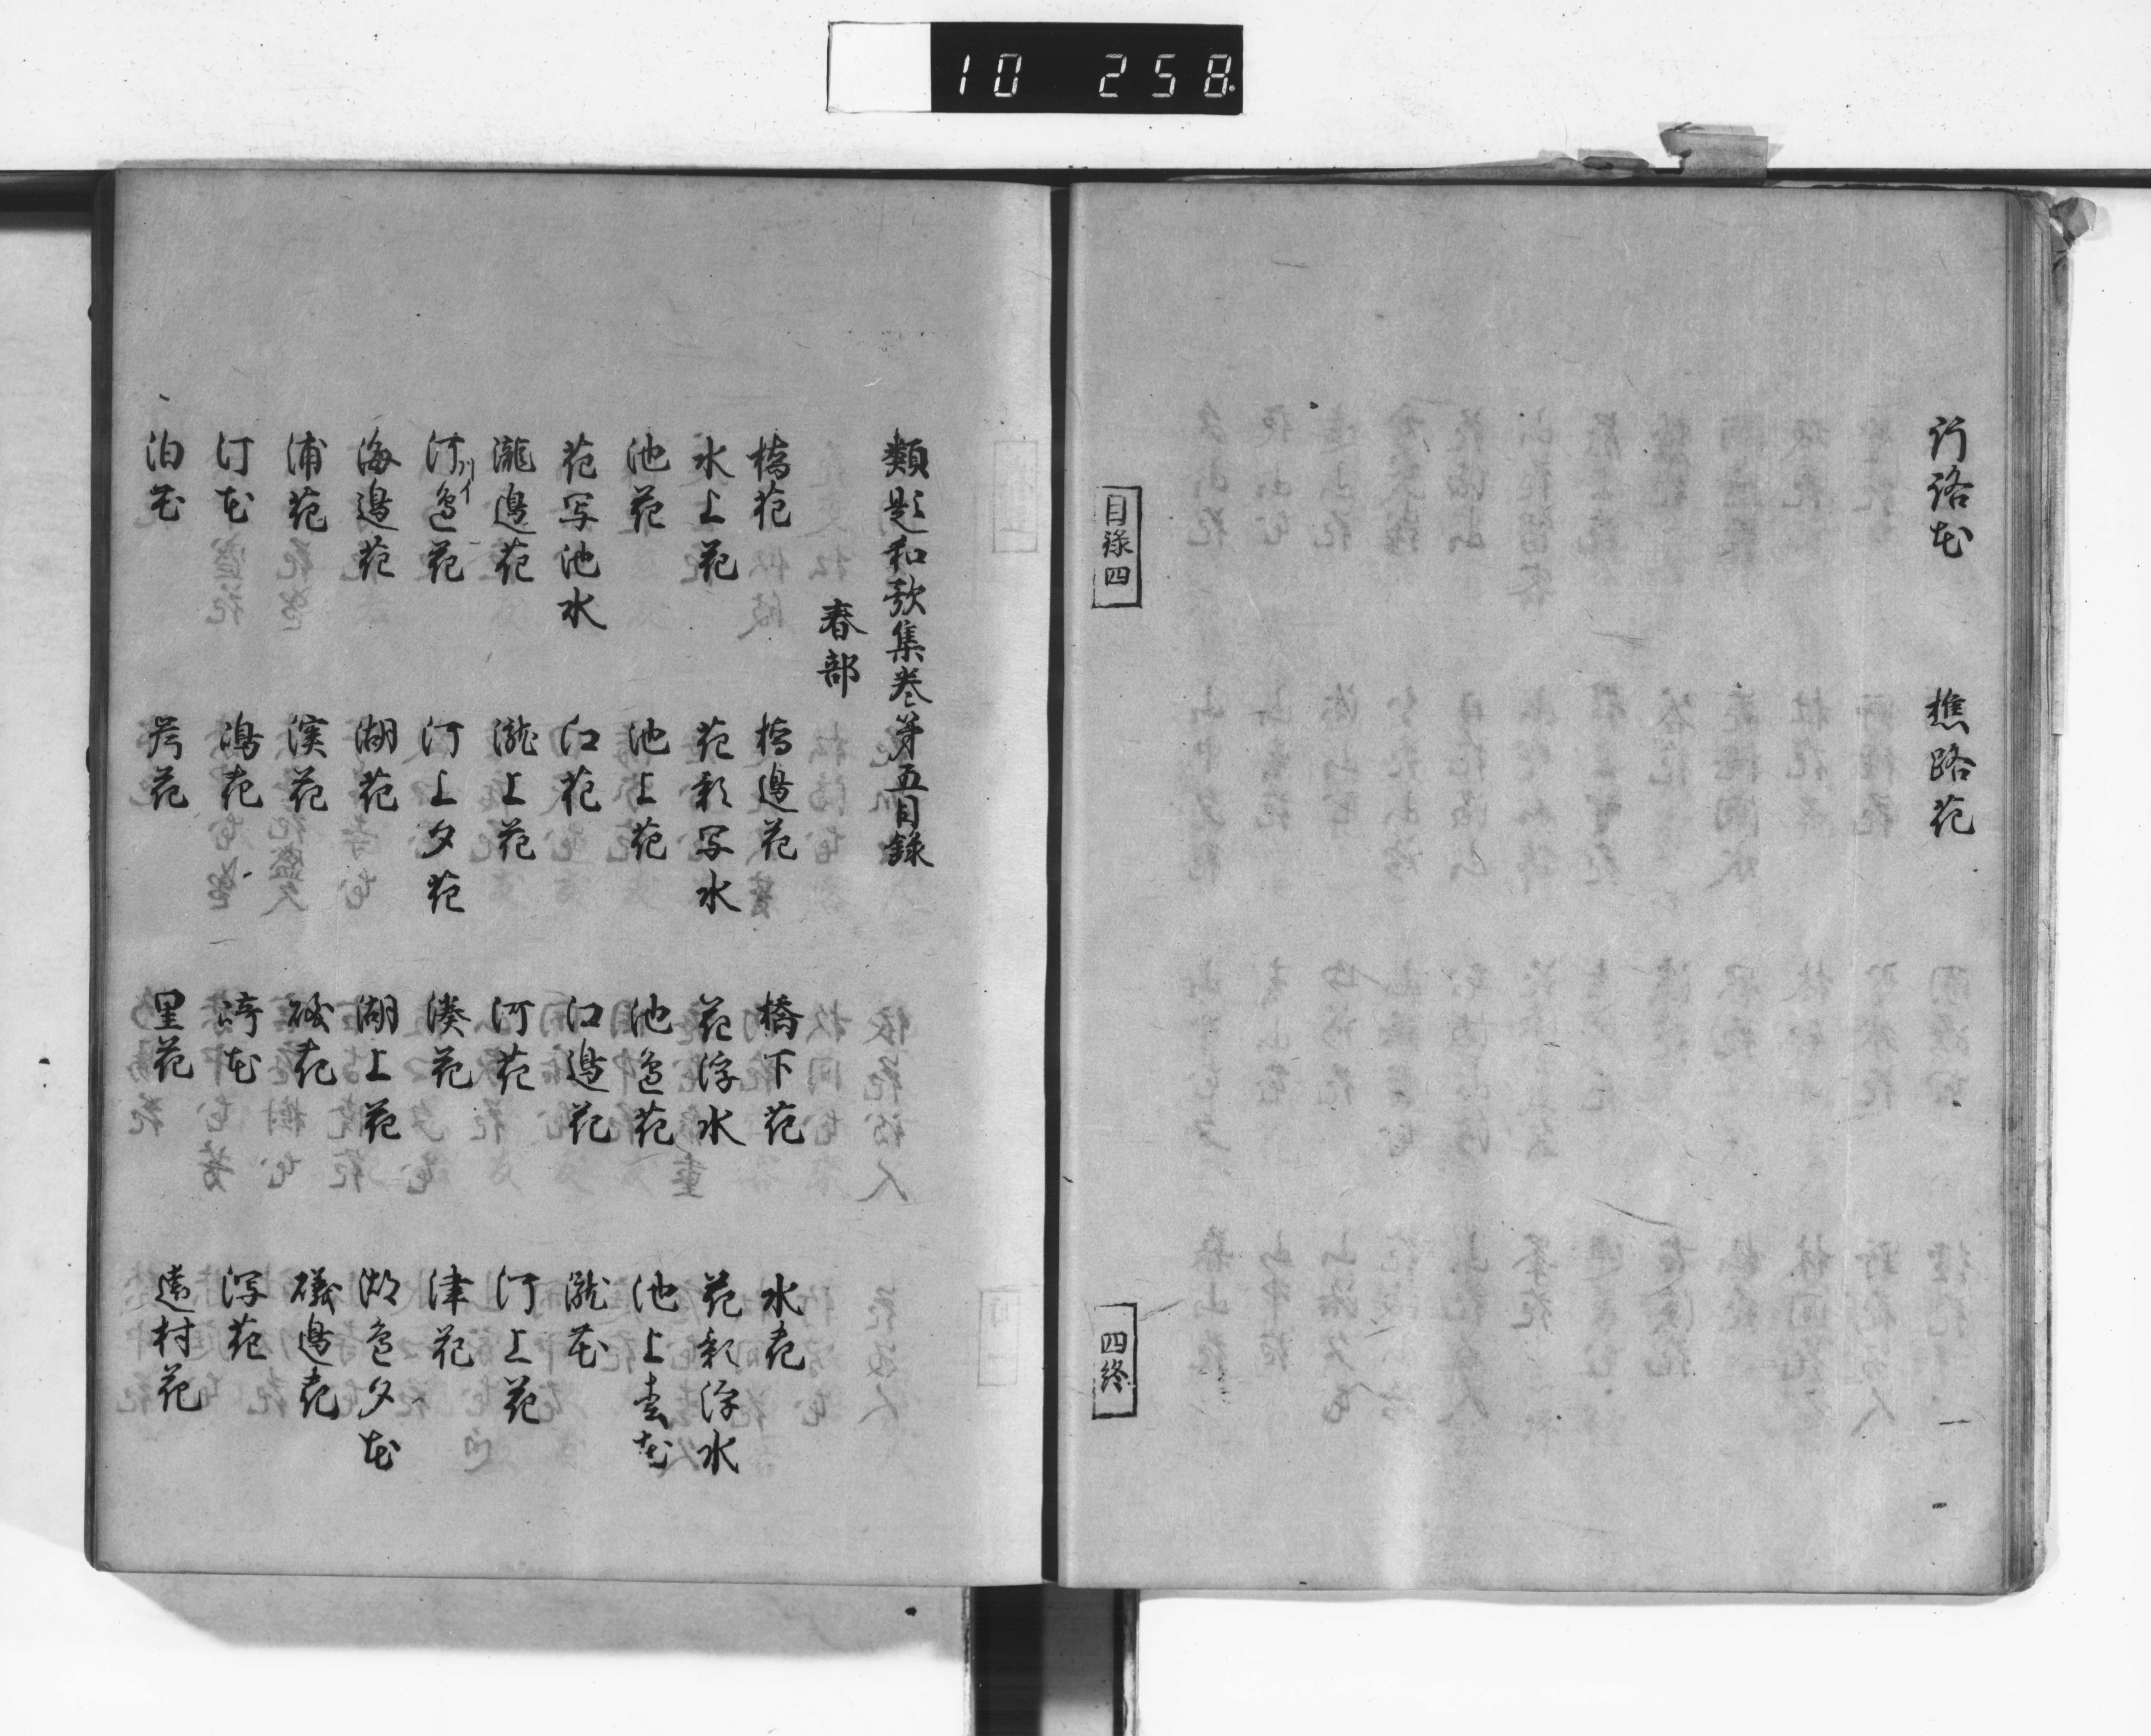 10 258
行路花　樵路花
目録四
四終
類題和歌集巻第五目録
春部
橋花　橋邊花　橋下花　水花
水上花　花影写水　花浮水　花影浮水
池花　池上花　池邊花　池上春花
花写池水　江花　江邊花　瀧花
瀧邊花　瀧上花　河花　河上花
河邊花　河上夕花　湊花　津花
海邊花　湖花　湖上花　湖邊夕花
浦花　濱花　礒花　礒邊花
汀花　嶋花　崎花　潟花
泊花　岸花　里花　遠村花